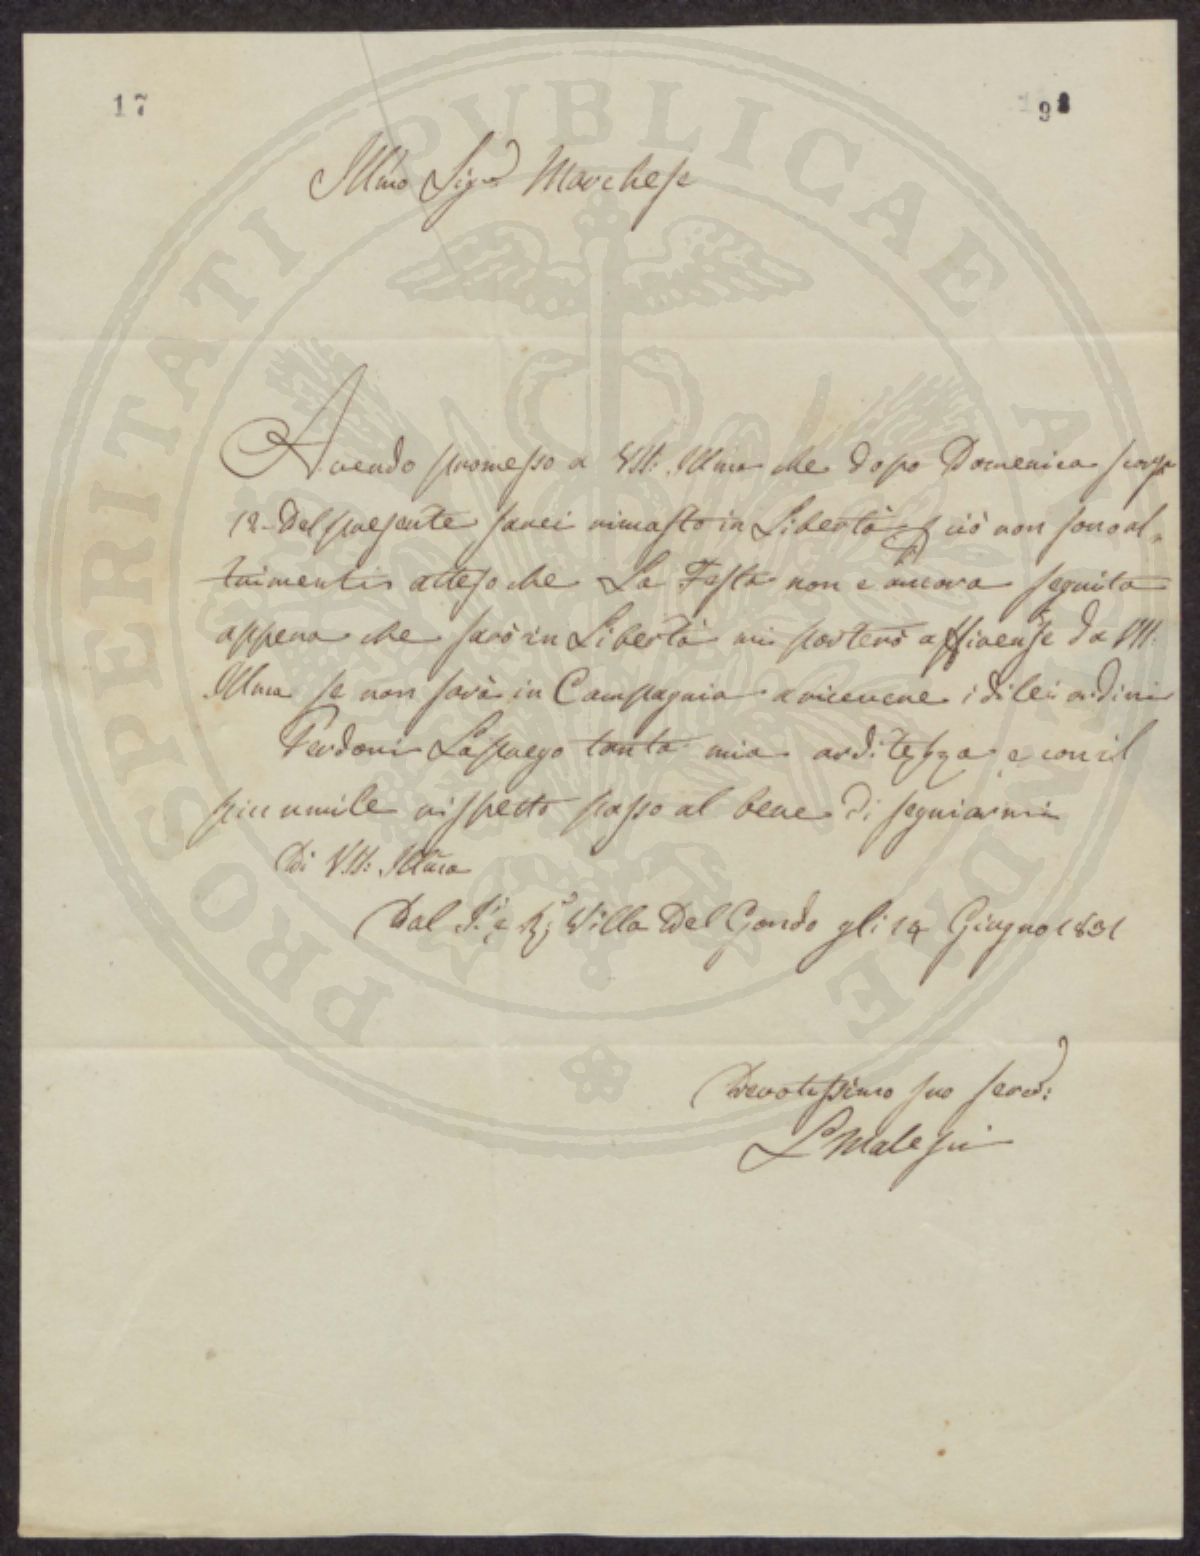 17
9
Illmo Sigre Marchese
Avendo promesso a VSS: Illma che dopo Domenica scorsa
12- Del presente sarei rimasto in Libertà ciò non sono al,,
trimenti atteso che La Festa non è ancora seguita
appena che sarò in Libertà mi porterò a Firenze da VSS:
Illma se non sarà in Campagnia a ricevere i di lei ordini
Perdoni La prego tanta mia arditezza e con il
piu umile rispetto passo al bene di segniarmi
Di VSS: Illma
Dal I: e R: Villa Del Gondo gli 14 Giugno 1831
Devotissimo suo serv:
L Malesci
PROSPERITATI PVBLICAE AVGENDAE